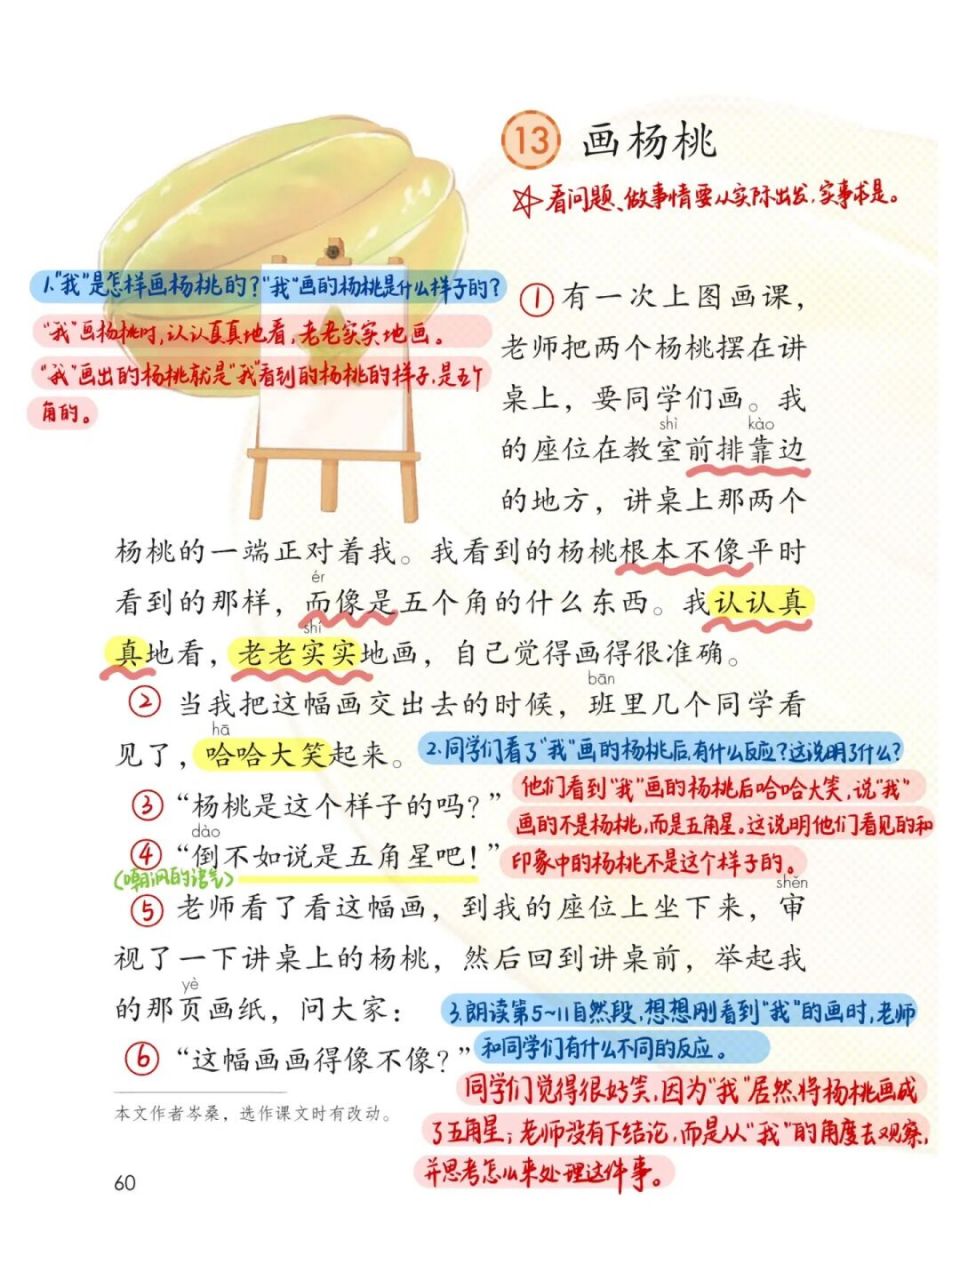 13 画杨桃
☆看问题、做事情要从实际出发,实事求是。
1."我"是怎样画杨桃的?"我"画的杨桃是什么样子的?
"我"画杨桃时,认认真真地看,老老实实地画。
"我"画出的杨桃就是"我"看到的杨桃的样子,是五个
角的。
①有一次上图画课,
老师把两个杨桃摆在讲
桌上,要同学们画。我
shì kào
的座位在教室前排靠边
的地方,讲桌上那两个
杨桃的一端正对着我。我看到的杨桃根本不像平时
ér
看到的那样,而像是五个角的什么东西。我认认真
shí
真地看,老老实实地画,自己觉得画得很准确。
bān
②当我把这幅画交出去的时候,班里几个同学看
hā
见了,哈哈大笑起来。
2.同学们看了"我"画的杨桃后,有什么反应?这说明了什么?
他们看到"我"画的杨桃后哈哈大笑,说"我"
画的不是杨桃,而是五角星。这说明他们看见的和
印象中的杨桃不是这个样子的。
③“杨桃是这个样子的吗?”
dào
④“倒不如说是五角星吧!”
(嘲讽的语气)
shěn
⑤老师看了看这幅画,到我的座位上坐下来,审
视了一下讲桌上的杨桃,然后回到讲桌前,举起我
yè
的那页画纸,问大家:
⑥“这幅画画得像不像?”
3.朗读第5~11自然段,想想刚看到"我"的画时,老师
和同学们有什么不同的反应。
同学们觉得很好笑,因为"我"居然将杨桃画成
了五角星;老师没有下结论,而是从"我"的角度去观察,
并思考怎么来处理这件事。
本文作者岑桑,选作课文时有改动。
60